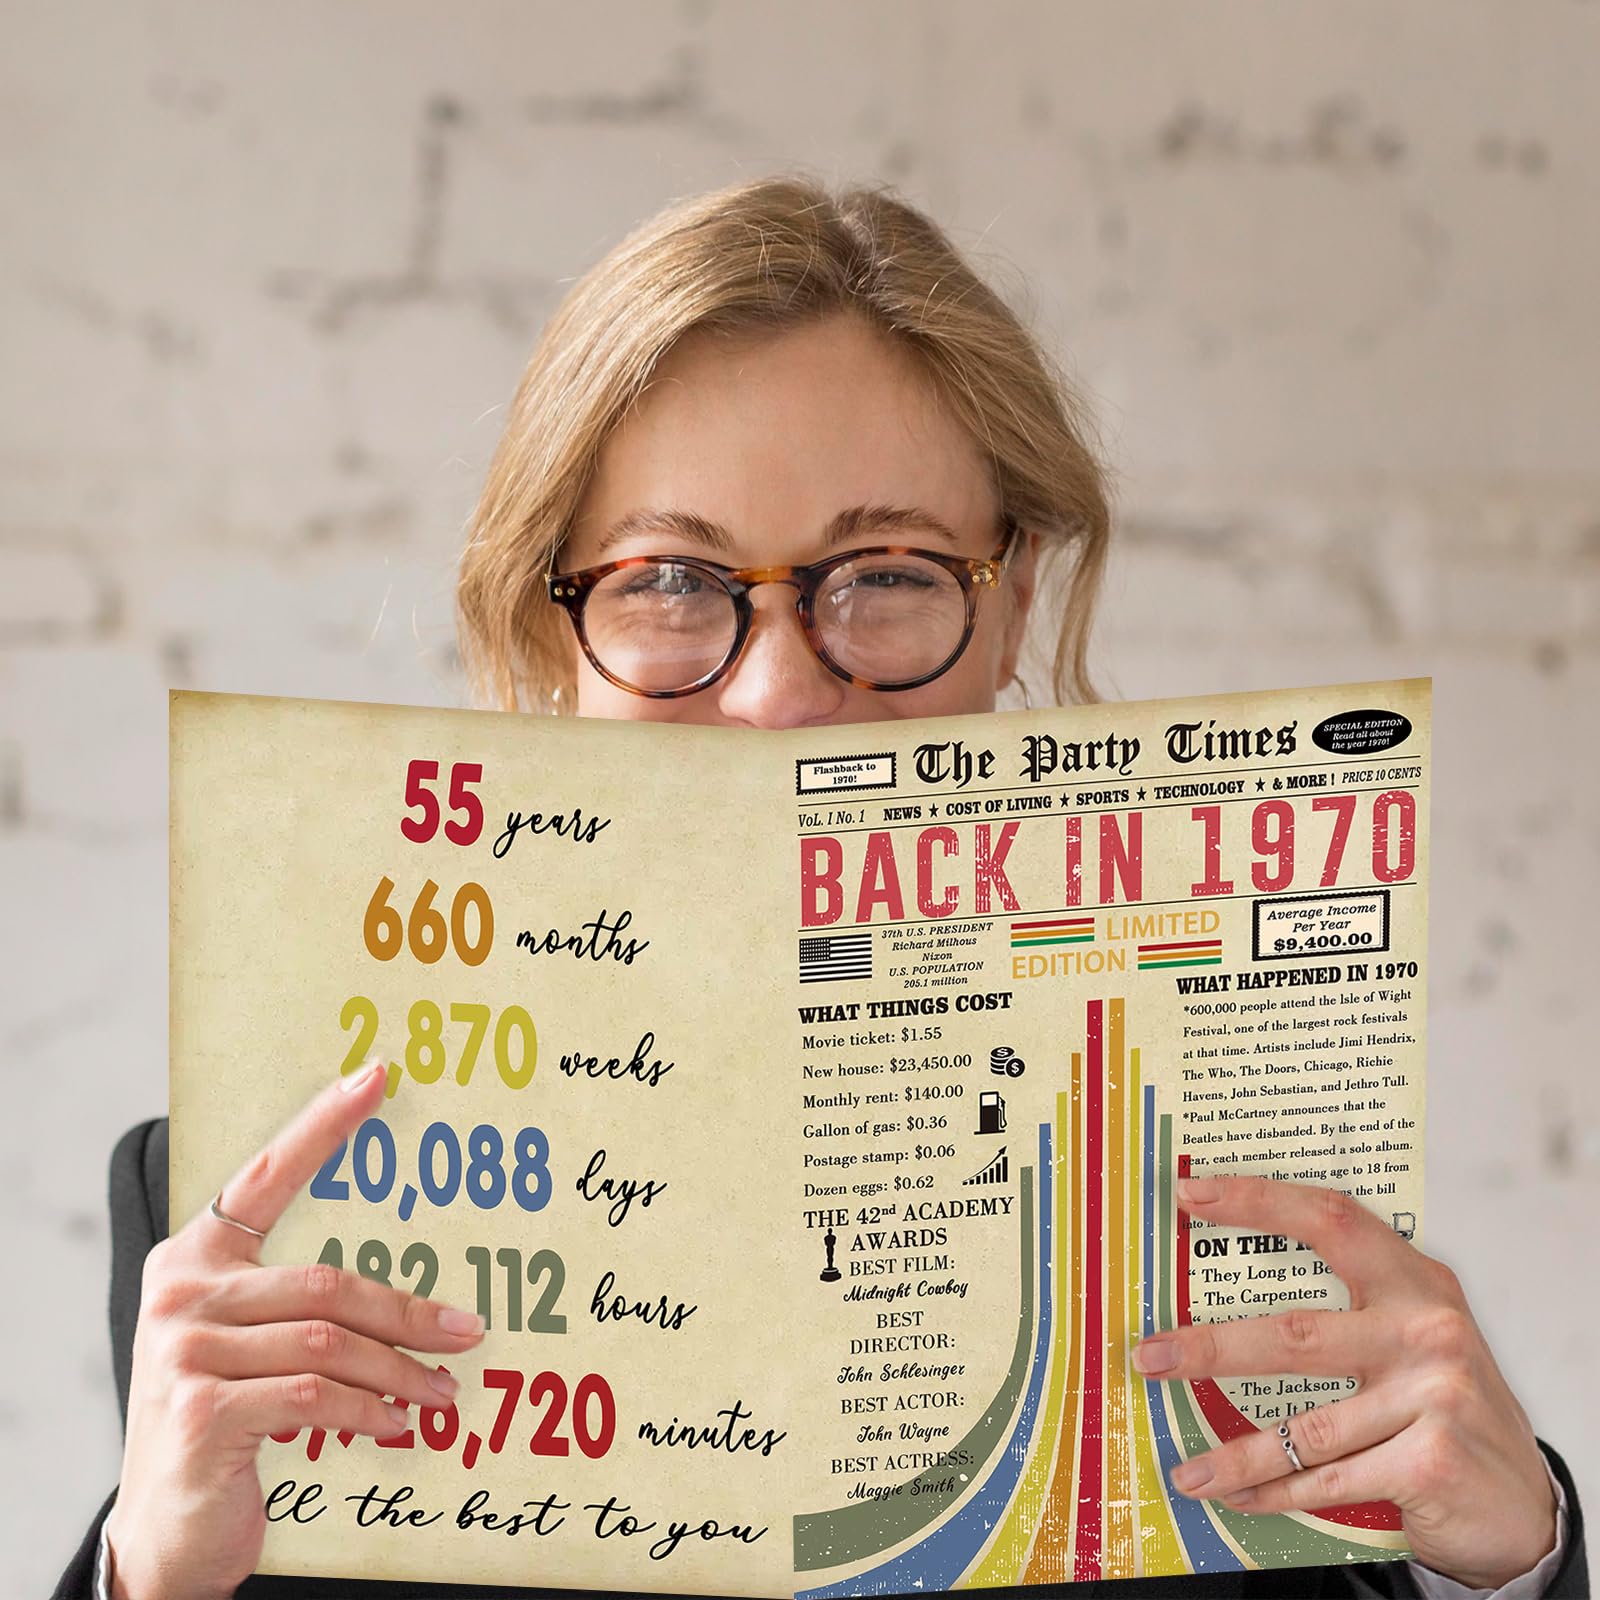 55 years
660 months
2,870 weeks
20,088 days
112 hours
,720 minutes
the best to you
Flashback to
1970!
The Party Times
SPECIAL EDITION
Read all about
the year 1970!
VoL. I No. 1 NEWS ★ COST OF LIVING ★ SPORTS ★ TECHNOLOGY ★ & MORE ! PRICE 10 CENTS
BACK IN 1970
37th U.S. PRESIDENT
Richard Milhous
Nixon
U.S. POPULATION
205.1 million
LIMITED
EDITION
Average Income
Per Year
$9,400.00
WHAT THINGS COST
Movie ticket: $1.55
New house: $23,450.00
Monthly rent: $140.00
Gallon of gas: $0.36
Postage stamp: $0.06
Dozen eggs: $0.62
THE 42nd ACADEMY
AWARDS
BEST FILM:
Midnight Cowboy
BEST
DIRECTOR:
John Schlesinger
BEST ACTOR:
John Wayne
BEST ACTRESS:
Maggie Smith
WHAT HAPPENED IN 1970
*600,000 people attend the Isle of Wight
Festival, one of the largest rock festivals
at that time. Artists include Jimi Hendrix,
The Who, The Doors, Chicago, Richie
Havens, John Sebastian, and Jethro Tull.
*Paul McCartney announces that the
Beatles have disbanded. By the end of the
year, each member released a solo album.
the voting age to 18 from
the bill
into
ON THE
“ They Long to Be
- The Carpenters
- The Jackson 5
“ Let It Be ”